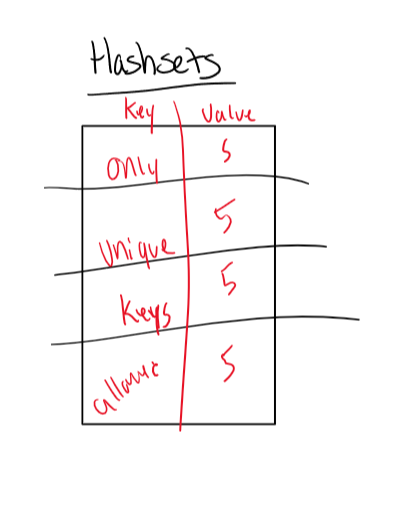 Hashsets
Key Value
only 5
Unique 5
Keys 5
5